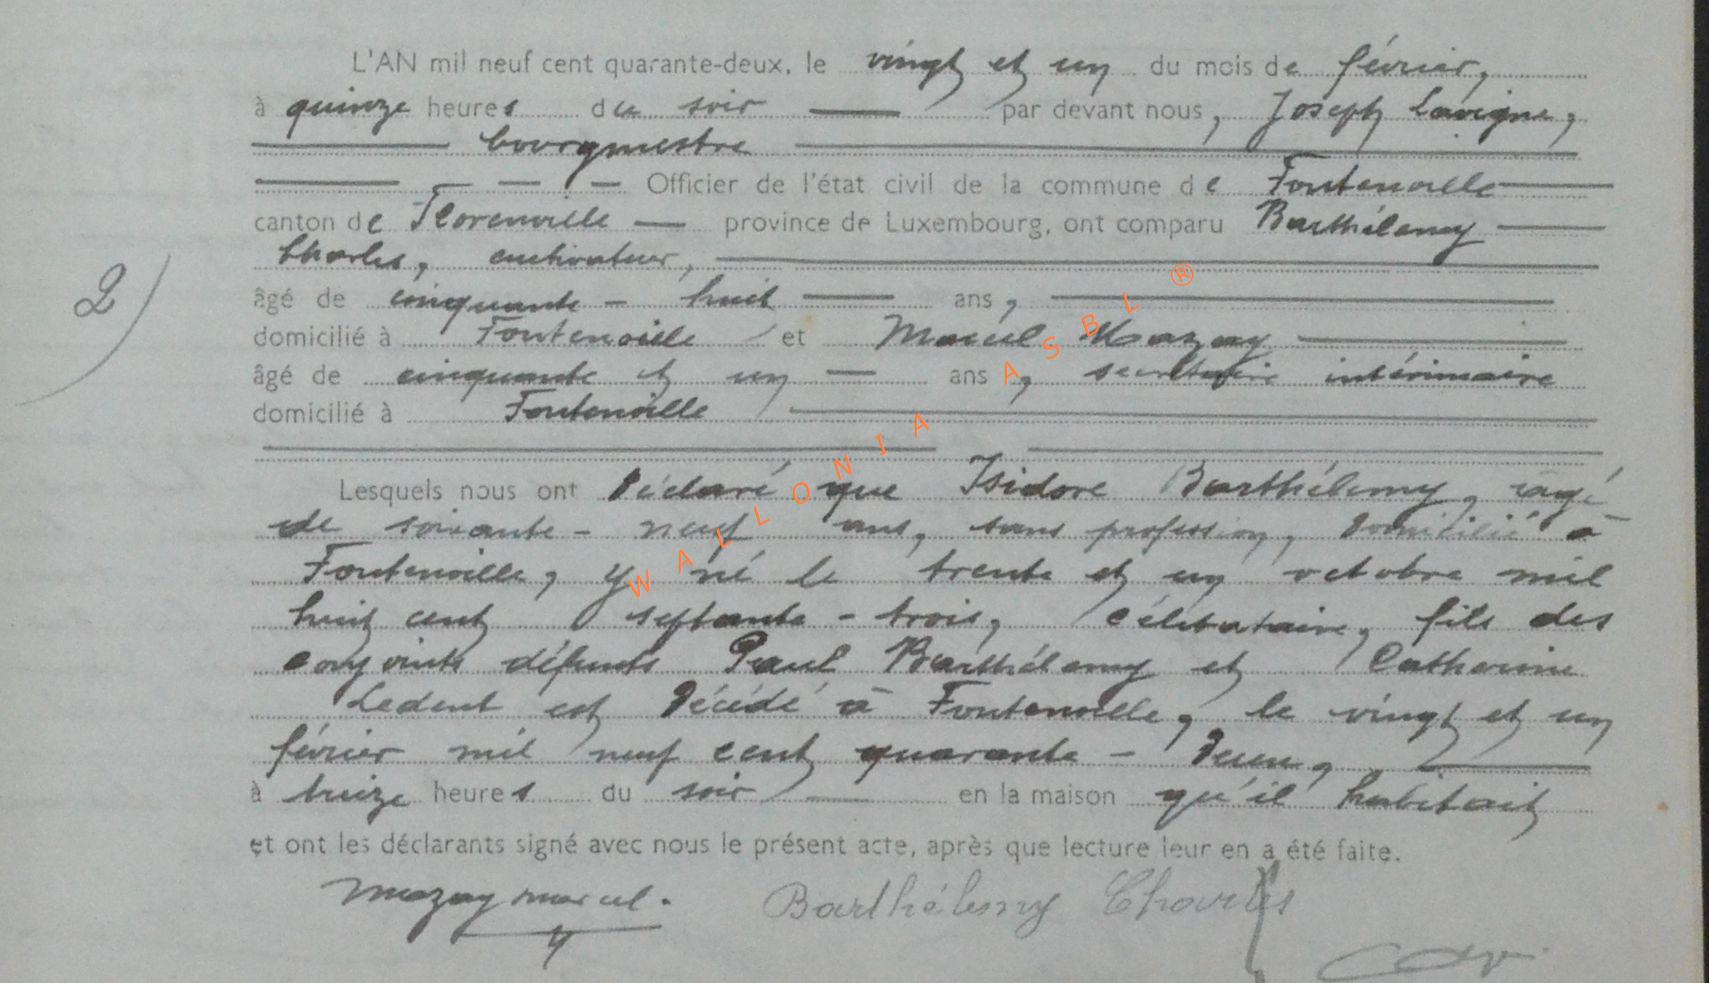 L'AN mil neuf cent quarante-deux, le vingt et un du mois de février,
à quinze heures du soir — par devant nous, Joseph Lavigne,
bourgmestre
Officier de l'état civil de la commune de Fontenoille
canton de Florenville — province de Luxembourg, ont comparu Barthélemy
Charles, cultivateur,
âgé de cinquante-huit ans,
domicilié à Fontenoille et Marcel Mazay
âgé de cinquante et un ans, secrétaire intérimaire
domicilié à Fontenoille
Lesquels nous ont déclaré que Isidore Barthélemy, âgé
de soixante-neuf ans, sans profession, domicilié à
Fontenoille, y né le trente et un octobre mil
huit cent septante-trois, célibataire, fils des
conjoints défunts Paul Barthélemy et Catherine
Ledent est décédé à Fontenoille, le vingt et un
février mil neuf cent quarante-deux,
à treize heures du soir — en la maison qu'il habitait
et ont les déclarants signé avec nous le présent acte, après que lecture leur en a été faite.
Mazay Marcel. Barthélemy Charles
2)
WALLONIA ASBL ®